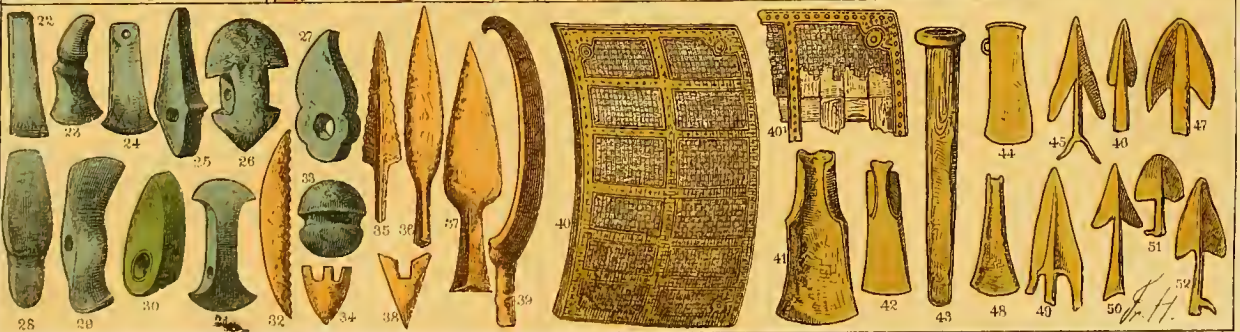 22
23
24
25
26
27
28
29
30
31
32
33
34
35
36
37
38
39
40
40¹
41
42
43
44
45
46
47
48
49
50
51
52
Fr. H.